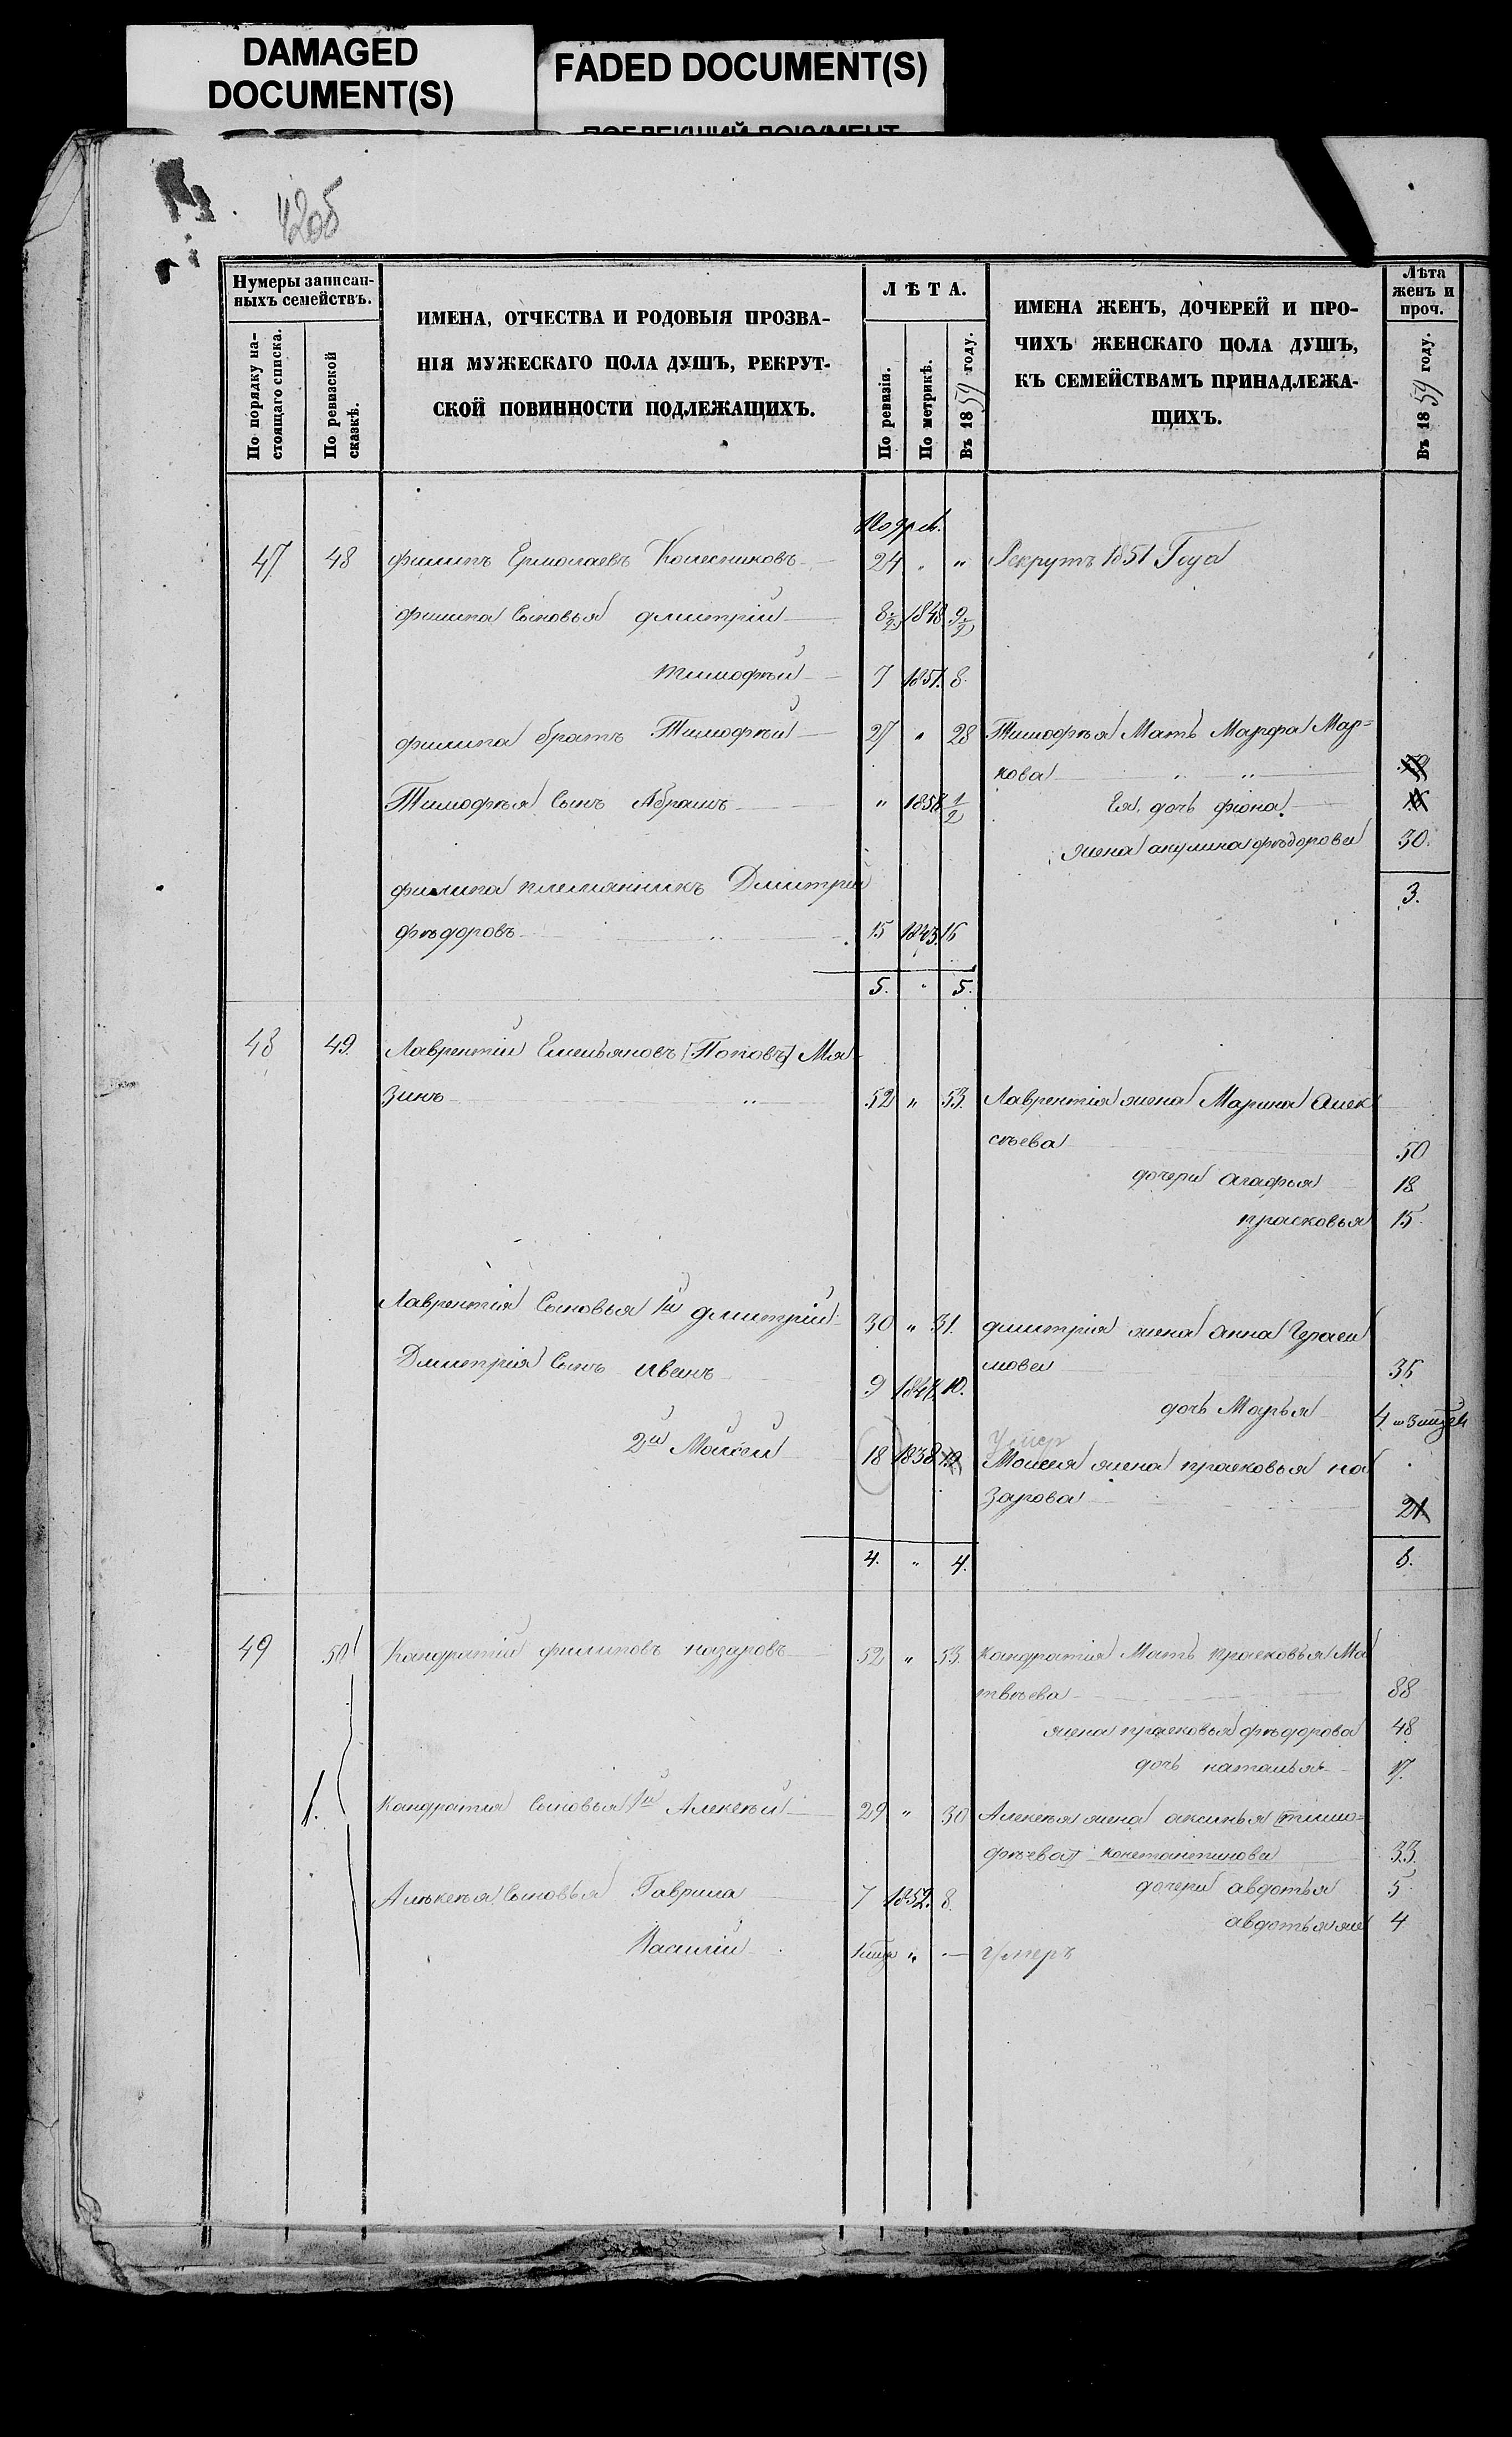 DAMAGED
DOCUMENT(S)
FADED DOCUMENT(S)
ПОБЛЕКШИЙ ДОКУМЕНТ
4205
Нумеры записан-
ныхъ семействъ.
По порядку на-
стоящаго списка.
По ревизской
сказкѣ.
ИМЕНА, ОТЧЕСТВА И РОДОВЫЯ ПРОЗВА-
НІЯ МУЖЕСКАГО ПОЛА ДУШЪ, РЕКРУТ-
СКОЙ ПОВИННОСТИ ПОДЛЕЖАЩИХЪ.
ЛѢТА.
По ревизіи.
По метрикѣ.
Въ 1859 году.
ИМЕНА ЖЕНЪ, ДОЧЕРЕЙ И ПРО-
ЧИХЪ ЖЕНСКАГО ПОЛА ДУШЪ,
КЪ СЕМЕЙСТВАМЪ ПРИНАДЛЕЖА-
ЩИХЪ.
Лѣта
женъ и
проч.
Въ 1859 году.
47 48 филипъ Ермолаевъ Колесниковъ 24 " " Рекрутъ 1851 Года
филипа Сыновья дмитрій 8½ 1848 9½
тимофѣй 7 1851. 8.
филипа братъ Тимофѣй 27 " 28 Тимофѣя Мать Марфа Мар=
кова
Тимофѣя Сынъ Абрамъ " 1858 ½ Ея дочь фіона
жена акулина фѣдорова 30.
филипа племянникъ Дмитрій 3.
фѣдоровъ 15 1843. 16
5. " 5.
48 49. Лаврентій Емельяновъ [Поповъ] Мя
зинъ 52 " 53. Лаврентія жена Марина Алек
сѣева 50
дочери агафья 18
прасковья 15.
Лаврентія Сыновья 1й дмитрій 30 " 31. дмитрія жена анна Гераси
мова 35
Дмитрія Сынъ иванъ 9 1848. 10.
дочь Марья 4
2й Моисей 18 1838 19 умер
Моисея жена прасковья на
зарова 21
4. " 4. 6.
49 50 Кандратій филиповъ назаровъ 52 " 53. кандратія Мать прасковья Ма
твѣева 88
жена прасковья фѣдорова 48
дочь наталья 17.
1. кандратія Сыновья 1й Алексѣй 29 " 30 Алексѣя жена аксинья [тимо=
фѣева] константинова 33.
Алѣксѣя Сыновья Гаврила 7 1852. 8. дочери авдотья 5
авдотья же 4
Василій " — Умеръ